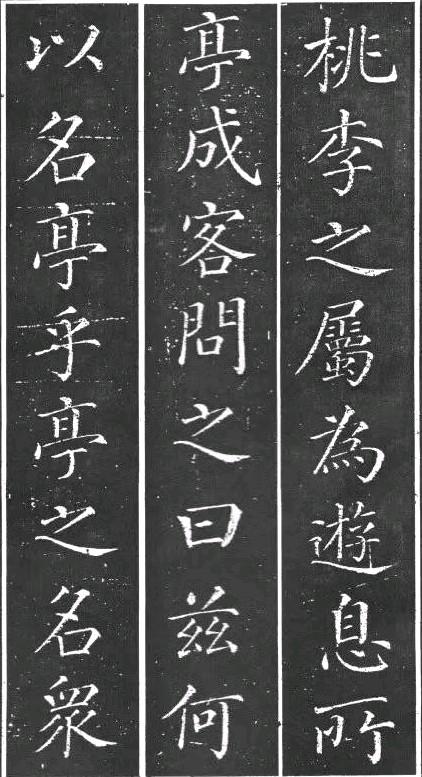 桃李之屬為遊息所
亭成客問之曰兹何
以名亭乎亭之名衆